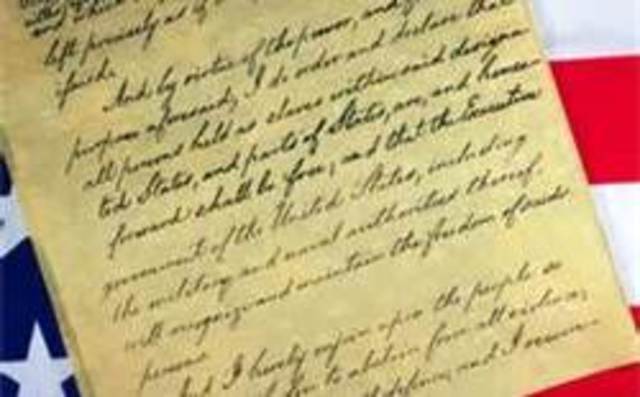 left precisely as if
And by virtue of the power, and
purpose aforesaid, I do order and declare that
all persons held as slaves within said designa-
ted States, and parts of States, are, and hence-
forward shall be free; and that the Executive
government of the United States, including
the military and naval authorities thereof,
will recognize and maintain the freedom of said
persons.
And I hereby enjoin upon the people so
to abstain from all violence,
defence; and I recom-